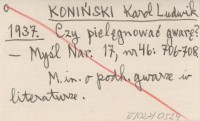 o KONIŃSKI Karol Ludwik
1937. Czy pielęgnować gwarę?
— Myśl Nar. 17, nr 46: 706-708
M. in. o podh. gwarze w
literaturze.